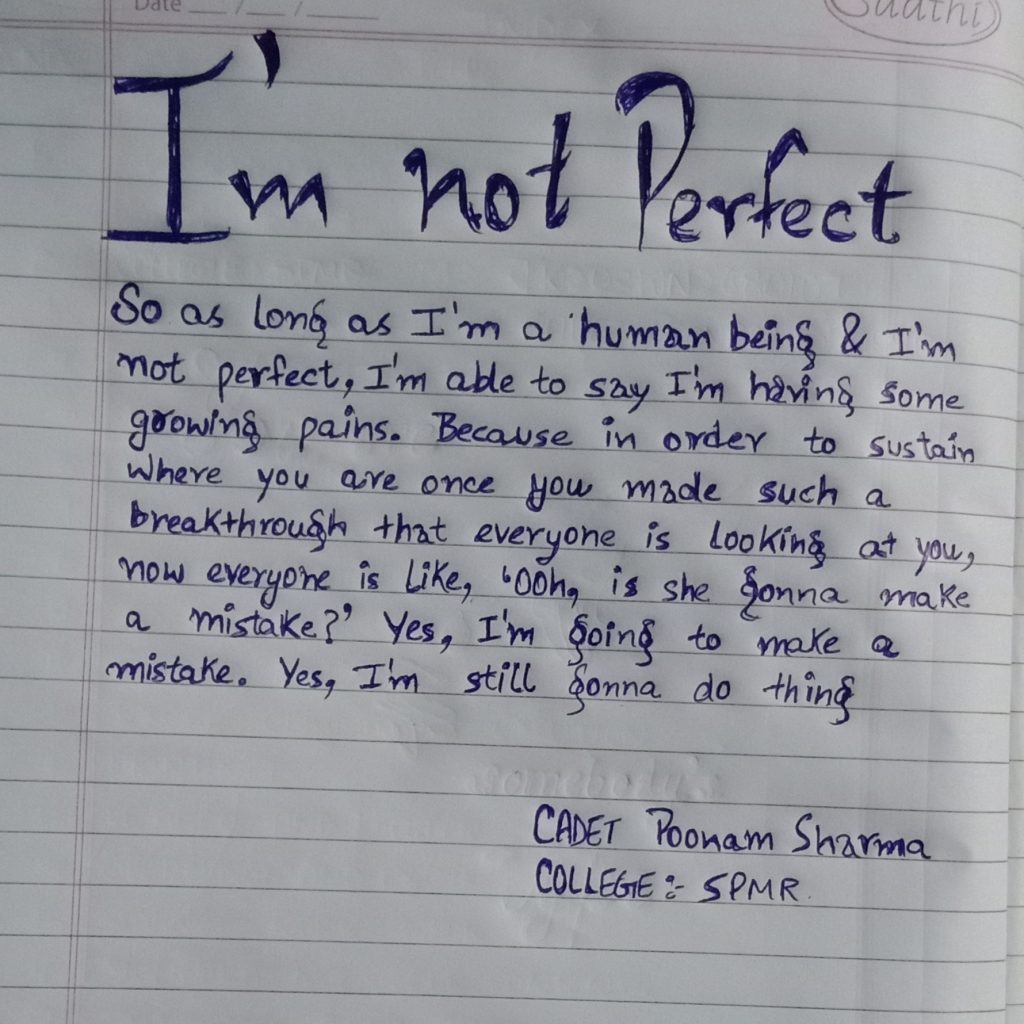 Date __/__/____
Saathi
I'm not Perfect
So as long as I'm a human being & I'm
not perfect, I'm able to say I'm having some
growing pains. Because in order to sustain
where you are once you made such a
breakthrough that everyone is looking at you,
now everyone is like, 'Ooh, is she gonna make
a mistake?' Yes, I'm going to make a
mistake. Yes, I'm still gonna do thing
somebody's
CADET Poonam Sharma
COLLEGE :- SPMR.